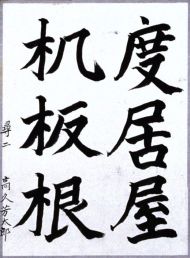 度居屋
机板根
尋二 高久芳太郎